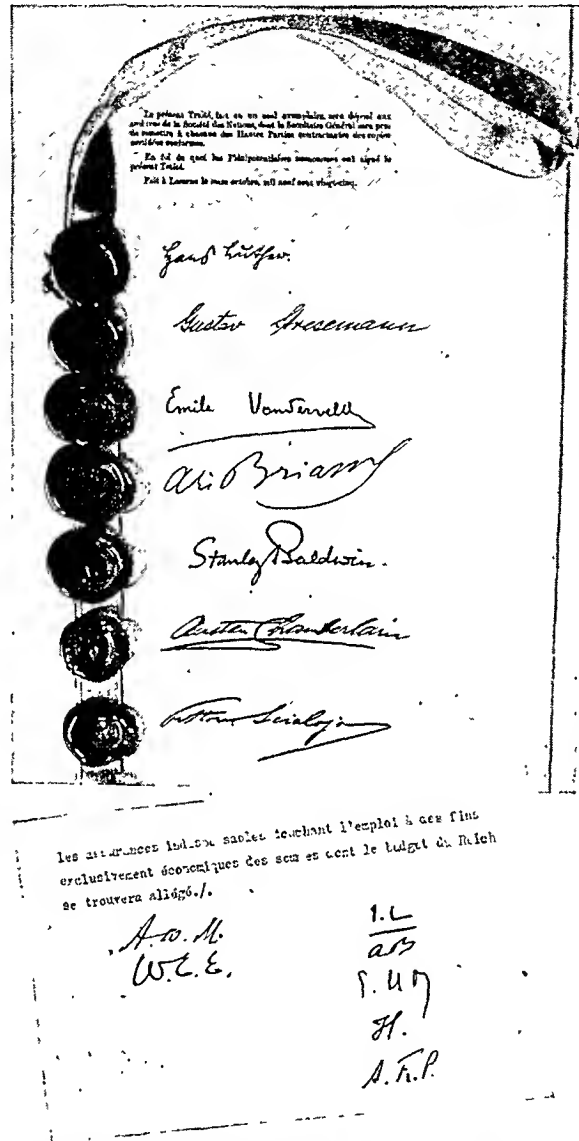 Le présent Traité, fait en un seul exemplaire, sera déposé aux
archives de la Société des Nations, dont le Secrétaire Général sera prié
de remettre à chacune des Hautes Parties contractantes des copies
certifiées conformes.
En foi de quoi les Plénipotentiaires ont signé le
présent Traité.
Fait à Locarno le seize octobre, mil neuf cent vingt-cinq.
Hans Luther.
Gustav Stresemann
Emile Vandervelde
Ari Briand
Stanley Baldwin.
Austen Chamberlain
Vittorio Scialoja
les assurances indispensables touchant l'emploi à des fins
exclusivement économiques des sommes dont le budget du Reich
se trouvera allégé./.
A.W.M.
W.E.E.
P.L
aB
H.
A.F.P.